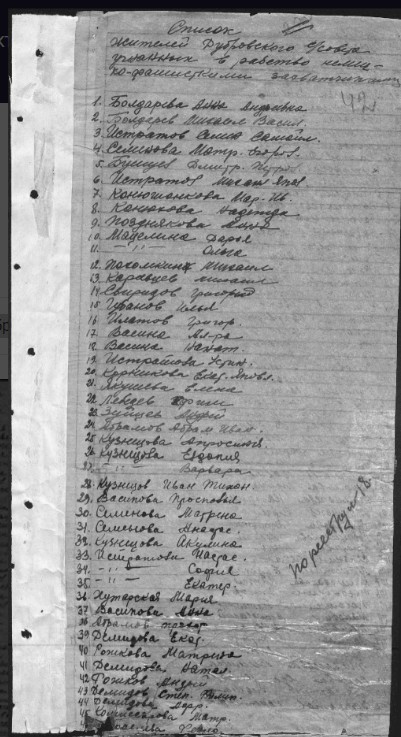 Список
жителей Дубровского с/совета
угнанных в рабство немец-
ко-фашисткими захватчиками
42
1. Болдарева Анна Андреевна
2. Болдарев Михаил Васил.
3. Истратов Семен Самойл.
4. Семенова Матр. Егор.
5. Дмитр.
6. Истратов Михаил Яков
7. Конюшонкова Мар. Ив.
8. Конюхова Надежда
9. Позднякова Анна
10. Мацелина Дарья
11. -"- Ольга
12. Михаил
13. Каравцев Михаил
14. Свиридов Григорий
15. Илья
16. Игнатов Григор.
17. Васина Ал-ра
18. Васина Натал.
19. Истратова Устин.
20. Екат. Яковл.
21. Якушева Елена
22. Лекаев Ефим
23. Зуйцев Андрей
24. Абрамов Абрам Иван.
25. Кузнецова Апросинья
26. Кузнецова Евдокия
27. -"- Варвара
28. Кузнецов Иван Тихон.
29. Васипова Просковья
30. Семенова Матрена
31. Семенова Анастас.
32. Кузнецова Акулина
33. Истратова Настас.
34. -"- София
35. -"- Екатер.
36. Хуторская Мария
37. Васипова Анна
38. Абрамов
39. Демидова Екат.
40. Рожкова Матрена
41. Демидова Натал.
42. Рожков Андрей
43. Демидов Степ.
44. Демидова Дар.
45. Комиссарова Матр.
по реестру 18